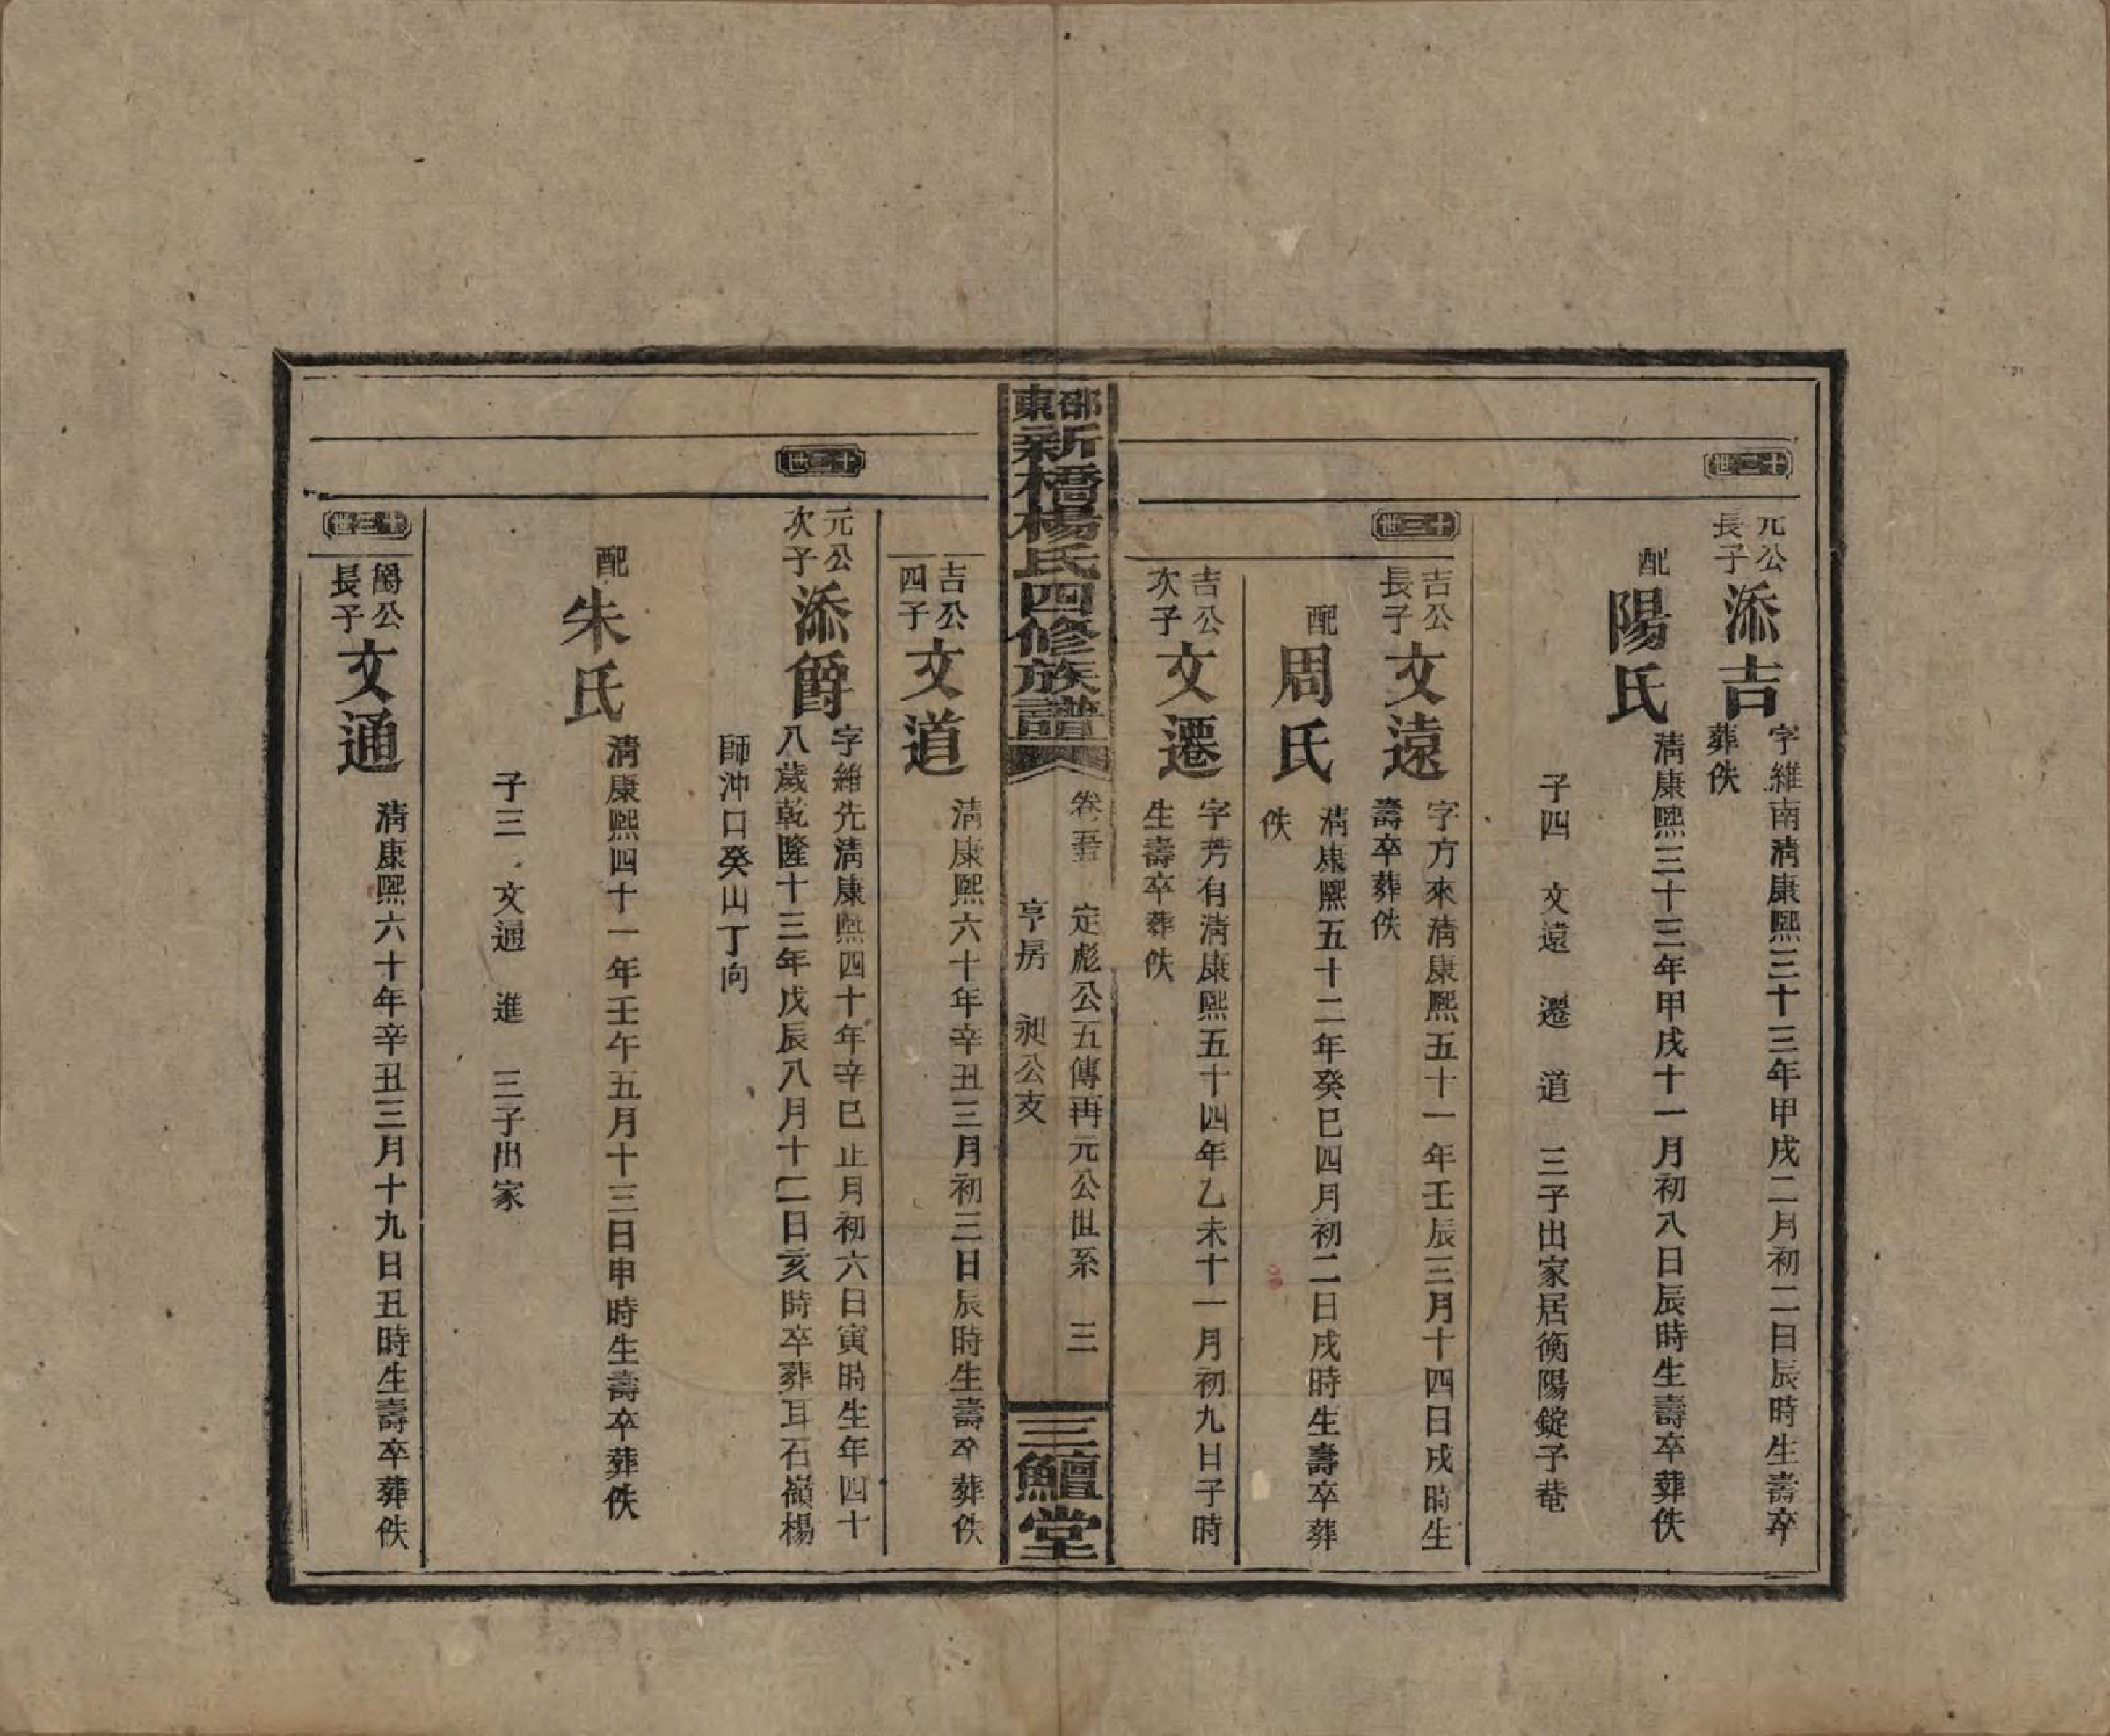 十二世
元公
長子
添吉
字維南清康熙三十三年甲戌二月初二日辰時生壽卒
葬佚
配
陽氏
清康熙三十三年甲戌十一月初八日辰時生壽卒葬佚
子四 文遠 遷 道 三子出家居衡陽錠子菴
十三世
吉公
長子
文遠
字方來清康熙五十一年壬辰三月十四日戌時生
壽卒葬佚
配
周氏
清康熙五十二年癸巳四月初二日戌時生壽卒葬
佚
吉公
次子
文遷
字芳有清康熙五十四年乙未十一月初九日子時
生壽卒葬佚
邵東
新橋楊氏四修族譜
卷五 定彪公五傳再元公世系 三
亨房 昶公支
三鱣堂
吉公
四子
文道
清康熙六十年辛丑三月初三日辰時生壽卒葬佚
十二世
元公
次子
添爵
字維先清康熙四十年辛巳正月初六日寅時生年四十
八歲乾隆十三年戊辰八月十二日亥時卒葬耳石嶺楊
師沖口癸山丁向
配
朱氏
清康熙四十一年壬午五月十三日申時生壽卒葬佚
子三 文通 進 三子出家
十三世
爵公
長子
文通
清康熙六十年辛丑三月十九日丑時生壽卒葬佚